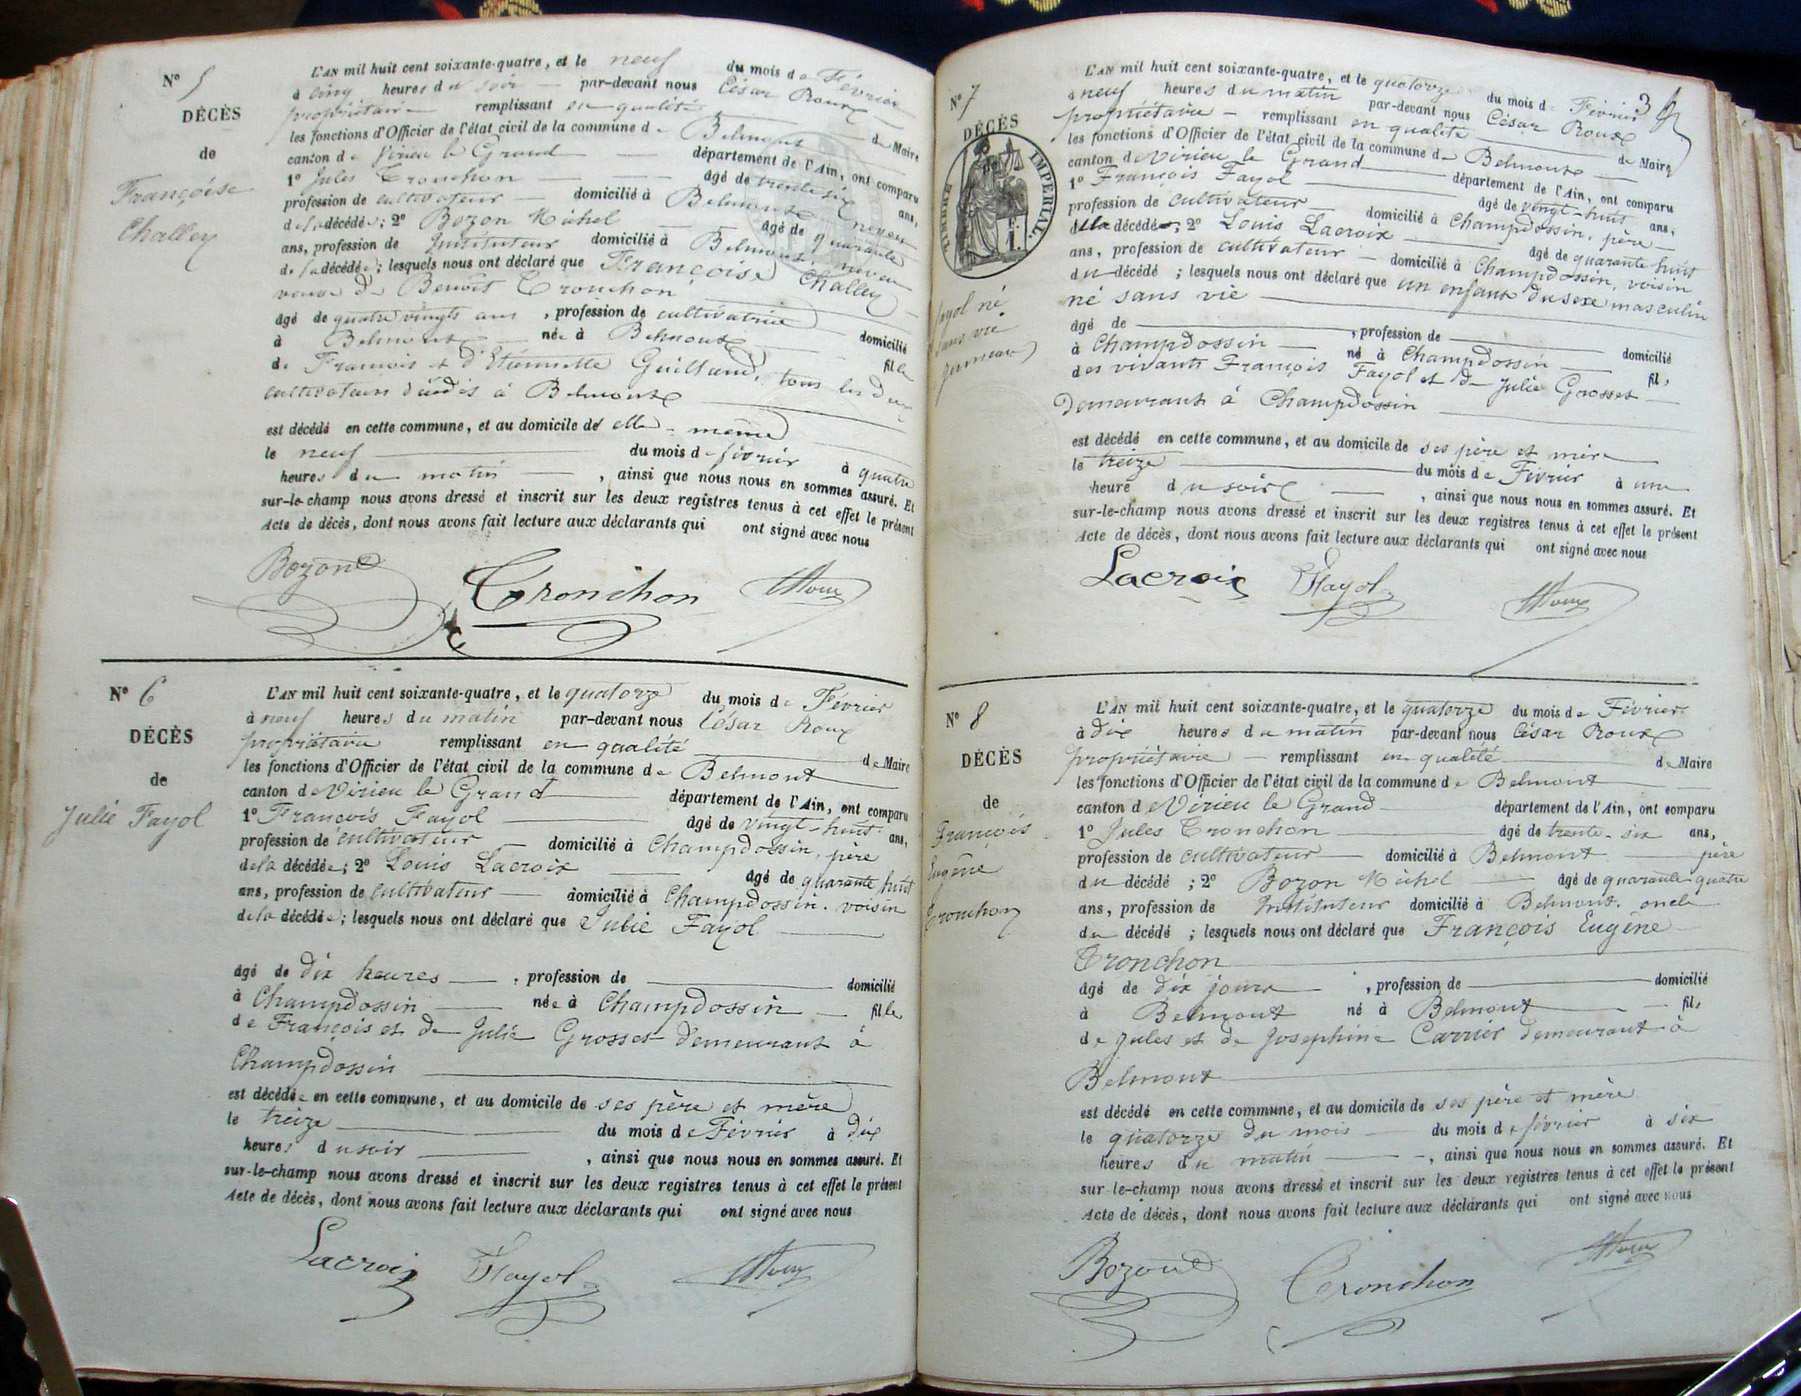 N° 5
DÉCÈS
de
Françoise
Challey
L'AN mil huit cent soixante-quatre, et le neuf du mois de Février
à cinq heures du soir par-devant nous César Roux
propriétaire remplissant en qualité de Maire
les fonctions d'Officier de l'état civil de la commune de Belmont
canton de Virieu le Grand département de l'Ain, ont comparu
1° Jules Tronchon âgé de trente six ans,
profession de cultivateur domicilié à Belmont neveu
de la décédée; 2° Bozon Michel âgé de quarante
ans, profession de Instituteur domicilié à Belmont, neveu
de la décédée; lesquels nous ont déclaré que Françoise Challey
veuve de Benoit Tronchon
âgé de quatre vingts ans, profession de cultivatrice domicilié
à Belmont née à Belmont fille
de Francois et d'Etiennette Guilland, tous les deux
cultivateurs décédés à Belmont
est décédé en cette commune, et au domicile de elle-même
le neuf du mois de février à quatre
heures du matin, ainsi que nous nous en sommes assuré. Et
sur-le-champ nous avons dressé et inscrit sur les deux registres tenus à cet effet le présent
Acte de décès, dont nous avons fait lecture aux déclarants qui ont signé avec nous
Bozon Tronchon Roux
N° 6
DÉCÈS
de
Julie Fayol
L'AN mil huit cent soixante-quatre, et le quatorze du mois de Février
à neuf heures du matin par-devant nous César Roux
propriétaire remplissant en qualité de Maire
les fonctions d'Officier de l'état civil de la commune de Belmont
canton de Virieu le Grand département de l'Ain, ont comparu
1° François Fayol âgé de vingt-huit ans,
profession de cultivateur domicilié à Champdossin, père
de la décédée; 2° Louis Lacroix âgé de quarante huit
ans, profession de cultivateur domicilié à Champdossin. voisin
de la décédée; lesquels nous ont déclaré que Julie Fayol
âgé de dix heures, profession de domicilié
à Champdossin née à Champdossin fille
de François et de Julie Grosset demeurant à
Champdossin
est décédée en cette commune, et au domicile de ses père et mère
le treize du mois de Février à dix
heures du soir, ainsi que nous nous en sommes assuré. Et
sur-le-champ nous avons dressé et inscrit sur les deux registres tenus à cet effet le présent
Acte de décès, dont nous avons fait lecture aux déclarants qui ont signé avec nous
Lacroix Fayol Roux
3
N° 7
DÉCÈS
TIMBRE IMPERIAL
Fayol né
sans vie
jumeau
L'AN mil huit cent soixante-quatre, et le quatorze du mois de Février
à neuf heures du matin par-devant nous César Roux
propriétaire remplissant en qualité de Maire
les fonctions d'Officier de l'état civil de la commune de Belmont
canton de Virieu le Grand département de l'Ain, ont comparu
1° François Fayol âgé de vingt-huit ans,
profession de cultivateur domicilié à Champdossin, père
du décédé; 2° Louis Lacroix âgé de quarante huit
ans, profession de cultivateur domicilié à Champdossin, voisin
du décédé; lesquels nous ont déclaré que un enfant du sexe masculin
né sans vie
âgé de, profession de domicilié
à Champdossin né à Champdossin fils
des vivants François Fayol et de Julie Grosset
Demeurant à Champdossin
est décédé en cette commune, et au domicile de ses père et mère
le treize du mois de Février à une
heure du soir, ainsi que nous nous en sommes assuré. Et
sur-le-champ nous avons dressé et inscrit sur les deux registres tenus à cet effet le présent
Acte de décès, dont nous avons fait lecture aux déclarants qui ont signé avec nous
Lacroix Fayol Roux
N° 8
DÉCÈS
de
François
Eugène
Tronchon
L'AN mil huit cent soixante-quatre, et le quatorze du mois de Février
à dix heures du matin par-devant nous César Roux
propriétaire remplissant en qualité de Maire
les fonctions d'Officier de l'état civil de la commune de Belmont
canton de Virieu le Grand département de l'Ain, ont comparu
1° Jules Tronchon âgé de trente-six ans,
profession de cultivateur domicilié à Belmont père
du décédé; 2° Bozon Michel âgé de quarante-quatre
ans, profession de Instituteur domicilié à Belmont. oncle
du décédé; lesquels nous ont déclaré que François Eugène
Tronchon
âgé de dix jours, profession de domicilié
à Belmont né à Belmont fils
de Jules et de Josephine Carrier demeurant à
Belmont
est décédé en cette commune, et au domicile de ses père et mère
le quatorze du mois du mois de février à six
heures du matin, ainsi que nous nous en sommes assuré. Et
sur-le-champ nous avons dressé et inscrit sur les deux registres tenus à cet effet le présent
Acte de décès, dont nous avons fait lecture aux déclarants qui ont signé avec nous
Bozon Tronchon Roux